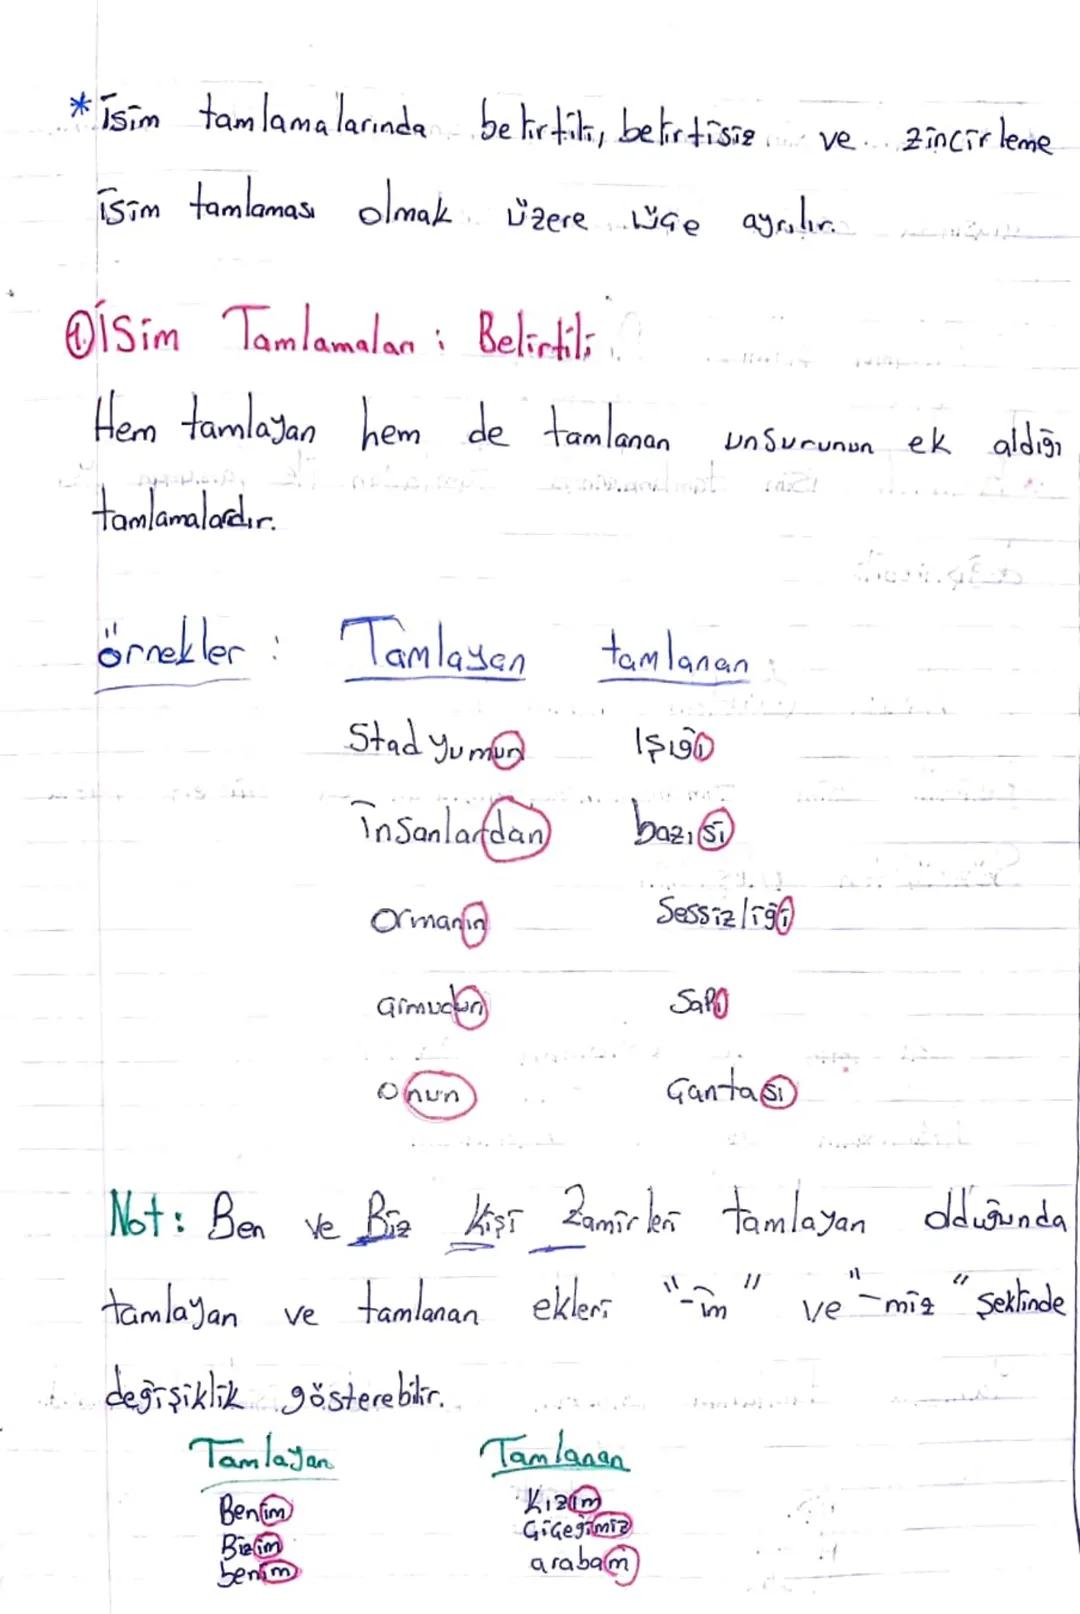 * İsim tamlamalarında belirtili, belirtisiz ve zincirleme
isim tamlaması olmak üzere üçe ayrılır.
1. İsim Tamlamaları: Belirtili
Hem tamlayan hem de tamlanan unsurunun ek aldığı
tamlamalardır.
örnekler: Tamlayan tamlanan:
Stadyumun Işığı
insanlardan bazısı
Ormanın Sessizliği
Sapı
Onun Çantası
Not: Ben ve Biz Kişi Zamirleri tamlayan olduğunda
tamlayan ve tamlanan ekleri "-im" ve "-miz" Şeklinde
değişiklik gösterebilir.
Tamlayan Tamlanan
Benim Kızım
Bizim Çiçeğimiz
benim arabam